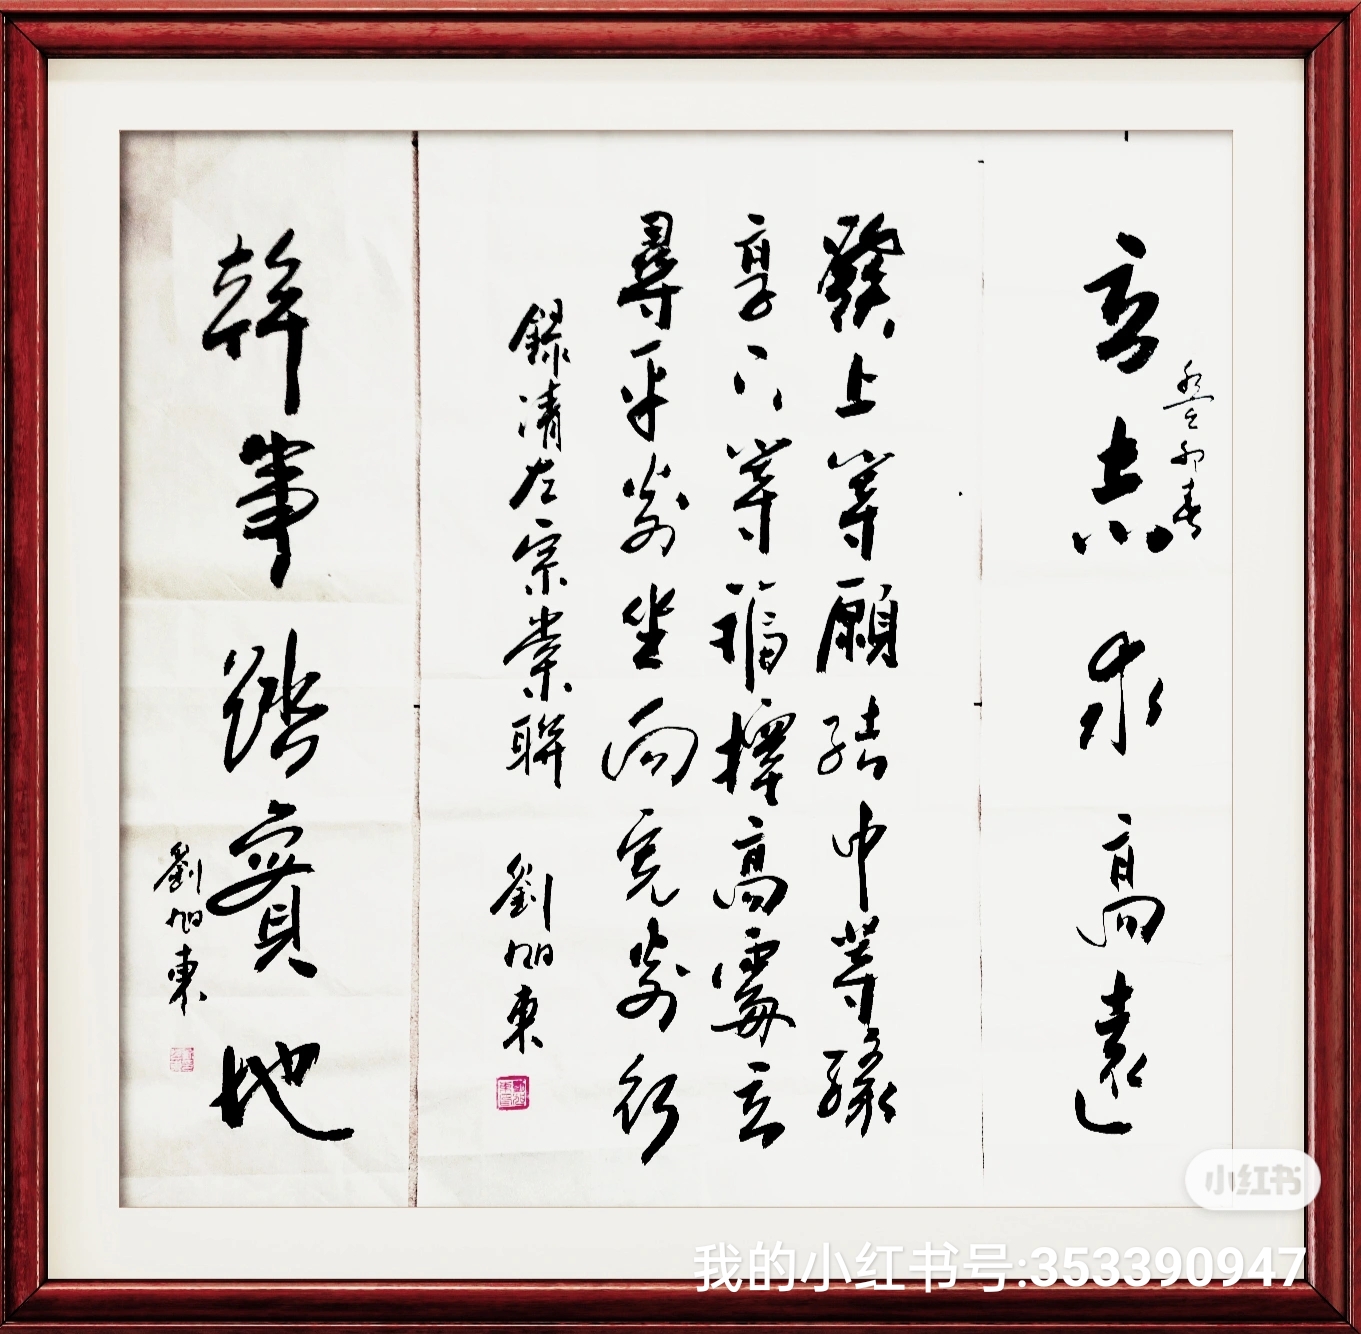 立志求高遠
癸卯春
發上等願結中等緣
享下等福擇高處立
尋平處坐向寬處行
錄清左宗棠聯 劉旭東
幹事踏實地
劉旭東
小红书
我的小红书号:353390947